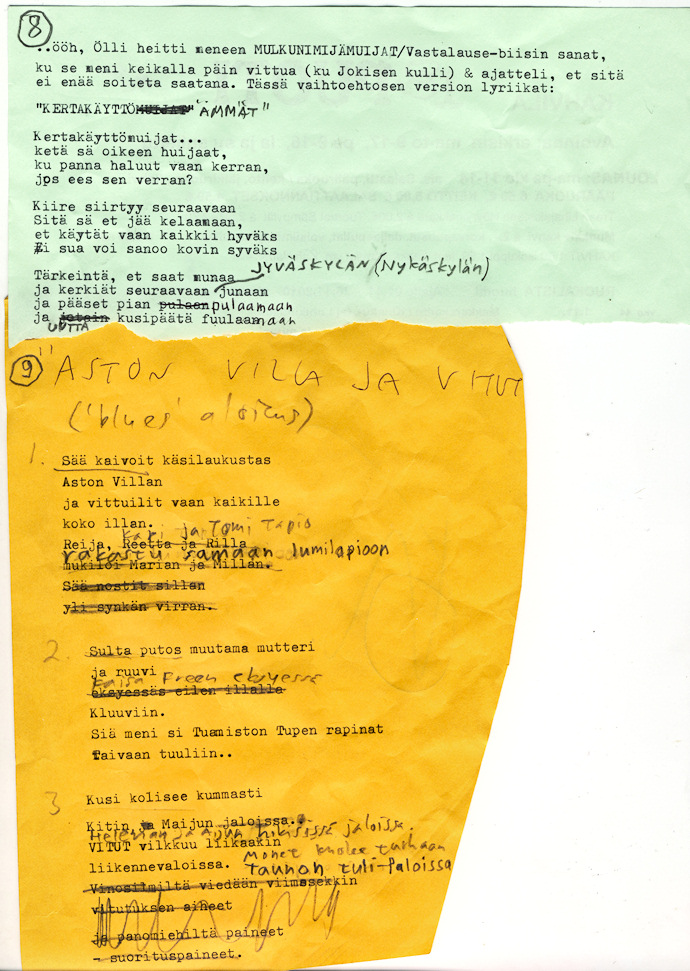 8
..ööh, Ölli heitti meneen MULKUNIMIJÄMUIJAT/Vastalause-biisin sanat,
ku se meni keikalla päin vittua (ku Jokisen kulli) & ajatteli, et sitä
ei enää soiteta saatana. Tässä vaihtoehtosen version lyriikat:
"KERTAKÄYTTÖMUIJAT" ÄMMÄT"
Kertakäyttömuijat...
ketä sä oikeen huijaat,
ku panna haluut vaan kerran,
jos ees sen verran?
Kiire siirtyy seuraavaan
Sitä sä et jää kelaamaan,
et käytät vaan kaikkii hyväks
Ei sua voi sanoo kovin syväks
Tärkeintä, et saat munaa
JYVÄSKYLÄN (Nykäskylän)
ja kerkiät seuraavaan junaan
ja pääset pian pulaan pulaamaan
ja jotain kusipäätä fuulaamaan
UUTTA
9 "ASTON VILLA JA VITUT
('blues' aloitus)
1. Sää kaivoit käsilaukustas
Aston Villan
ja vittuilit vaan kaikille
koko illan.
Kaki ja Tomi Tapio
Reija, Reetta ja Rilla
rakastu samaan lumilapioon
mukiloi Marian ja Millan.
Sää nostit sillan
yli synkän virran.
2. Sulta putos muutama mutteri
ja ruuvi
Kaisa Freen eksyessä
eksyessäs eilen illalla
Kluuviin.
Siä meni si Tuamiston Tupen rapinat
Taivaan tuuliin..
3 Kusi kolisee kummasti
Kitin ja Maijun jaloissa..
Helenan ja Aijun hikisissä jaloissa
VITUT vilkkuu liikaakin
Monet kuolee turhaan
liikennevaloissa. Taunon tuli-paloissa
Vinosilmiltä viedään viimesekkin
vitutuksen aiheet
ja panomiehiltä paineet
- suorituspaineet.